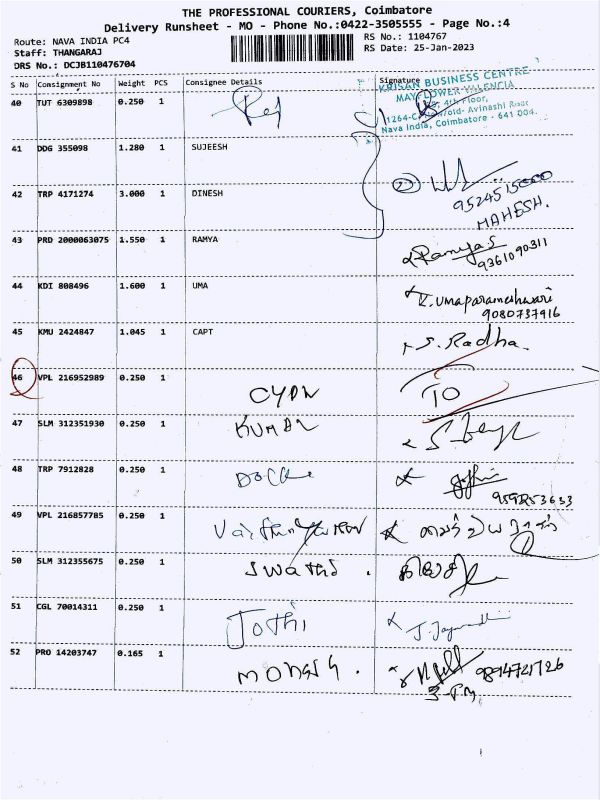 THE PROFESSIONAL COURIERS, Coimbatore
Delivery Runsheet - MO - Phone No.:0422-3505555 - Page No.:4
Route: NAVA INDIA PC4
Staff: THANGARAJ
DRS No.: DCJB110476704
RS No.: 1104767
RS Date: 25-Jan-2023
S No Consignment No Weight PCS Consignee Details Signature
KRISAN BUSINESS CENTRE
MAYFLOWER VALENCIA
4th Floor,
Avinashi Road
Nava India, Coimbatore - 641 004.
40 TUT 6309898 0.250 1
41 DDG 355098 1.280 1 SUJEESH
42 TRP 4171274 3.000 1 DINESH
9524515000
MAHESH.
43 PRD 2000063075 1.550 1 RAMYA Ramya S
9361090311
44 KDI 808496 1.600 1 UMA K. Umaparameshwari
9080737916
45 KMU 2424847 1.045 1 CAPT S. Radha.
46 VPL 216952989 0.250 1 TO
47 SLM 312351930 0.250 1 KUMAR
48 TRP 7912828 0.250 1
49 VPL 216857785 0.250 1
50 SLM 312355675 0.250 1 SWATHI .
51 CGL 70014311 0.250 1 Jothi
52 PRO 14203747 0.165 1 9894721726